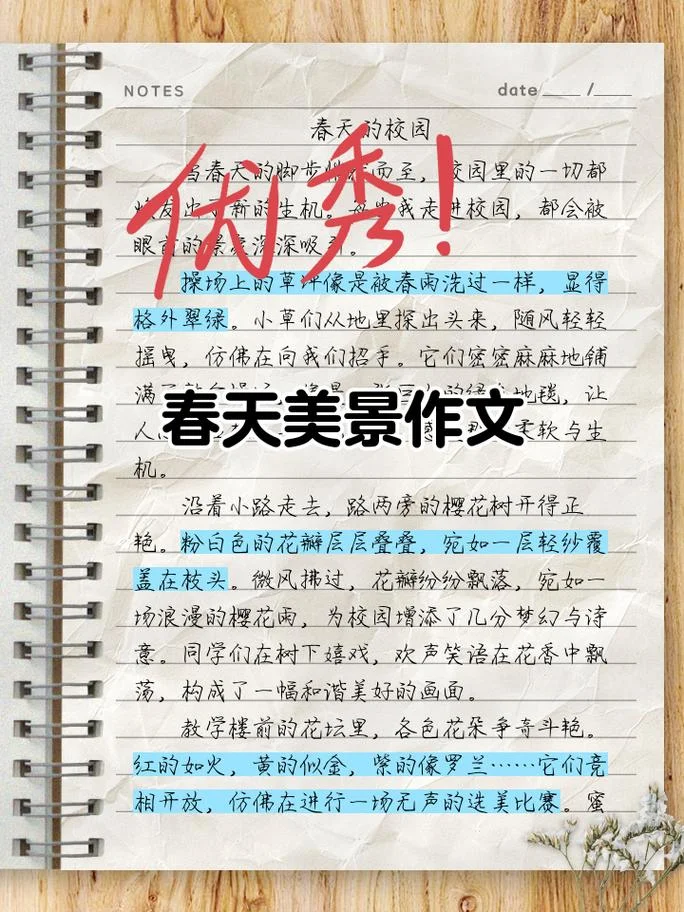 NOTES
date ____ /____
春天的校园
当春天的脚步悄然而至，校园里的一切都
焕发出了新的生机。每当我走进校园，都会被
眼前的景象深深吸引。
优秀！
操场上的草坪像是被春雨洗过一样，显得
格外翠绿。小草们从地里探出头来，随风轻轻
摇曳，仿佛在向我们招手。它们密密麻麻地铺
满了整个操场，像是一张巨大的绿色地毯，让
人
春天美景作文
柔软与生
机。
沿着小路走去，路两旁的樱花树开得正
艳。粉白色的花瓣层层叠叠，宛如一层轻纱覆
盖在枝头。微风拂过，花瓣纷纷飘落，宛如一
场浪漫的樱花雨，为校园增添了几分梦幻与诗
意。同学们在树下嬉戏，欢声笑语在花香中飘
荡，构成了一幅和谐美好的画面。
教学楼前的花坛里，各色花朵争奇斗艳。
红的如火，黄的似金，紫的像罗兰……它们竞
相开放，仿佛在进行一场无声的选美比赛。蜜